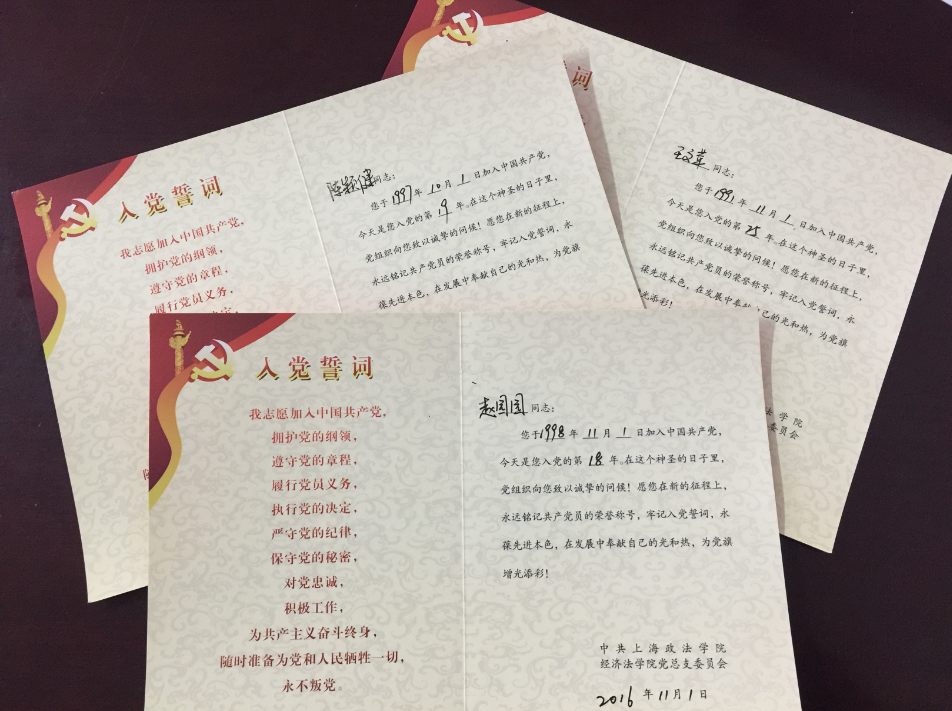 入党誓词
我志愿加入中国共产党，
拥护党的纲领，
遵守党的章程，
履行党员义务，
陈颖健同志：
您于1997年10月1日加入中国共产党，
今天是您入党的第19年。在这个神圣的日子里，
党组织向您致以诚挚的问候！愿您在新的征程上，
永远铭记共产党员的荣誉称号，牢记入党誓词，永
葆先进本色，在发展中奉献自己的光和热，为党旗
词
王文革同志：
您于1991年11月1日加入中国共产党，
今天是您入党的第25年。在这个神圣的日子里，
党组织向您致以诚挚的问候！愿您在新的征程上，
永远铭记共产党员的荣誉称号，牢记入党誓词，永
葆先进本色，在发展中奉献自己的光和热，为党旗
光添彩！
法学院
委员会
入党誓词
我志愿加入中国共产党，
拥护党的纲领，
遵守党的章程，
履行党员义务，
执行党的决定，
严守党的纪律，
保守党的秘密，
对党忠诚，
积极工作，
为共产主义奋斗终身，
随时准备为党和人民牺牲一切，
永不叛党。
赵园园同志：
您于1998年11月1日加入中国共产党，
今天是您入党的第18年。在这个神圣的日子里，
党组织向您致以诚挚的问候！愿您在新的征程上，
永远铭记共产党员的荣誉称号，牢记入党誓词，永
葆先进本色，在发展中奉献自己的光和热，为党旗
增光添彩！
中共上海政法学院
经济法学院党总支委员会
2016年11月1日